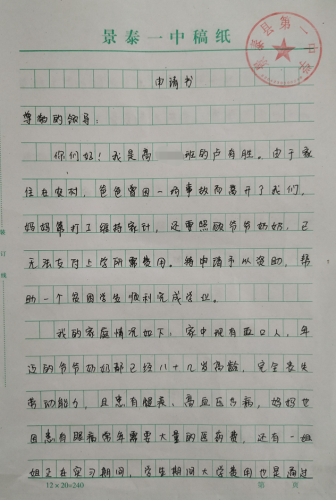 景泰一中稿纸
景泰县第一中学
申请书
尊敬的领导:
你们好!我是高 班的卢有胜。由于家
住在农村,爸爸曾因一场事故而离开了我们,
妈妈靠打工维持家计,还要照顾爷爷奶奶,已
无法支付上学所需费用。特申请予以资助,帮
助一个贫困学生顺利完成学业。
我的家庭情况如下:家中现有 口人,年
迈的爷爷奶奶都已经八十几岁高龄,完全丧失
劳动能力,且患有腿疼、高血压多病,妈妈也
因患有眼病常年需要大量的医药费,还有一姐
姐正在实习期间,学生期间大学费用也是通过
装订线
12×20=240
第 页